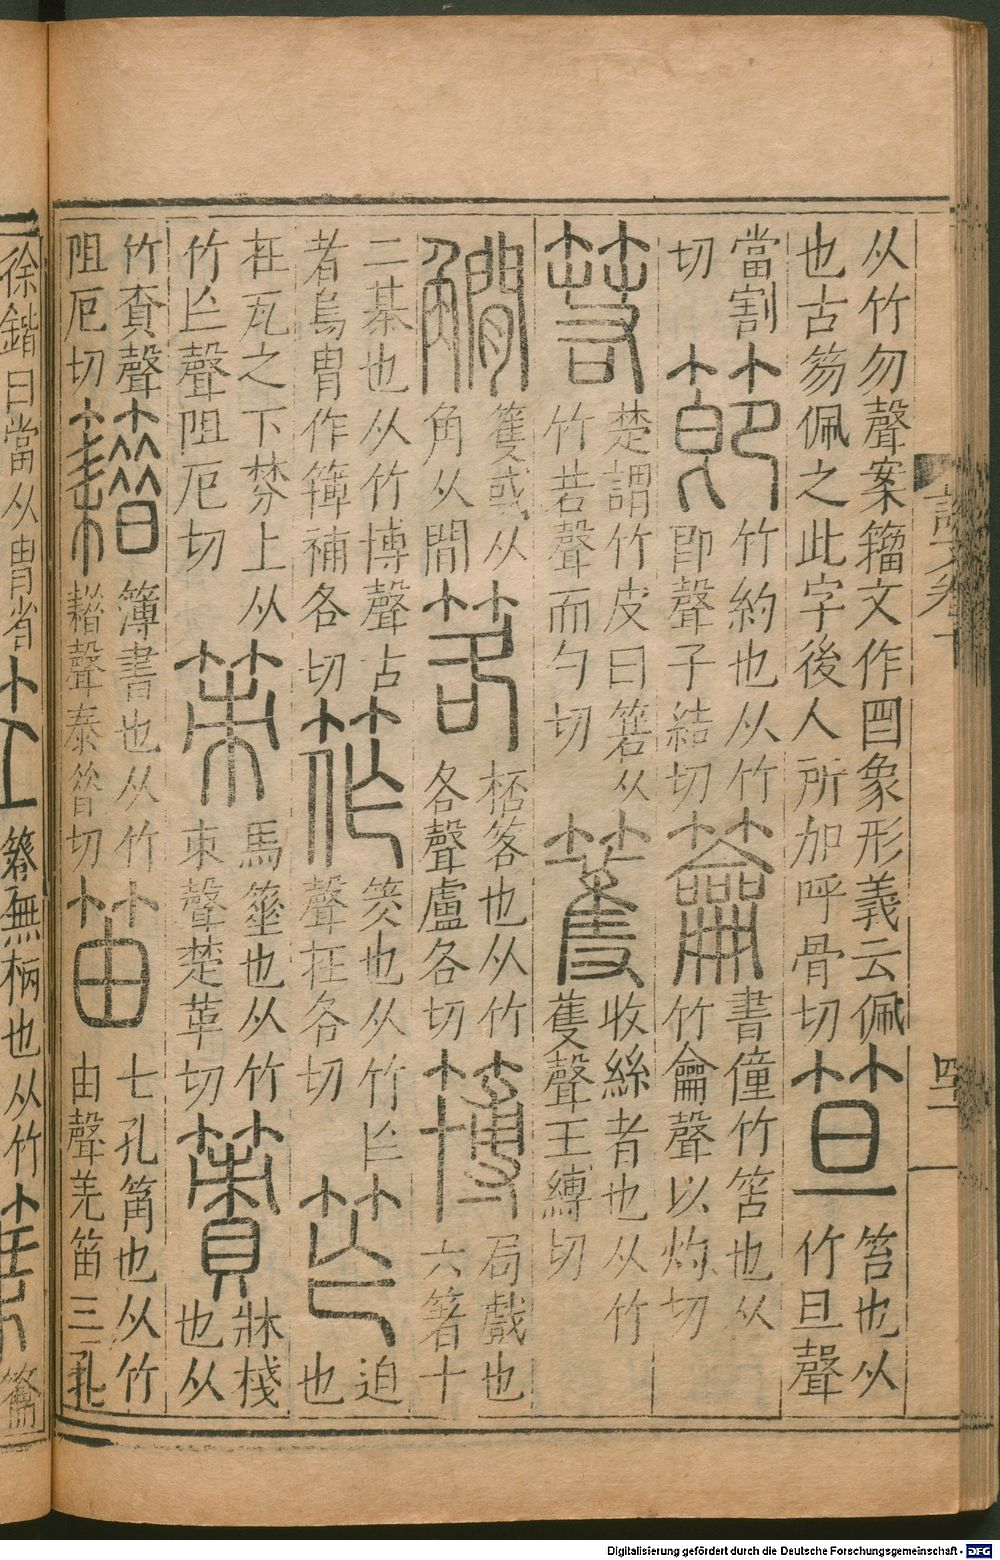 从竹勿聲案籀文作𠥓象形義云佩
也古笏佩之此字後人所加呼骨切
笪
笞也从
竹旦聲
當割
切
節
竹約也从竹
即聲子結切
籥
書僮竹笘也从
竹龠聲以灼切
箬
楚謂竹皮曰箬从
竹若聲而勺切
籆
收絲者也从竹
蒦聲王縛切
籆或从
角从間
筶
桮客也从竹
各聲盧各切
簙
局戲也
六箸十
二棊也从竹博聲古
者烏曹作簙補各切
筰
筊也从竹
聲在各切
笮
迫
也
在瓦之下棼上从
竹乍聲阻厄切
筞
馬箠也从竹
朿聲楚革切
簀
牀棧
也从
竹責聲
阻厄切
簿書也从竹
聲秦昔切
笛
七孔筩也从竹
由聲羌笛三孔
徐鍇曰當从冑省
簦無柄也从竹
說文卷十